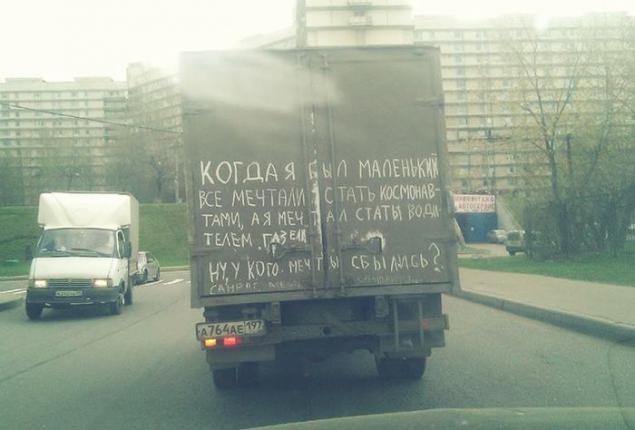 КОГДА Я БЫЛ МАЛЕНЬКИЙ
ВСЕ МЕЧТАЛИ СТАТЬ КОСМОНАВ-
ТАМИ, А Я МЕЧТАЛ СТАТЬ ВОДИ
ТЕЛЕМ ГАЗЕЛИ
НУ, У КОГО МЕЧТЫ СБЫЛИСЬ?
А764АЕ 197